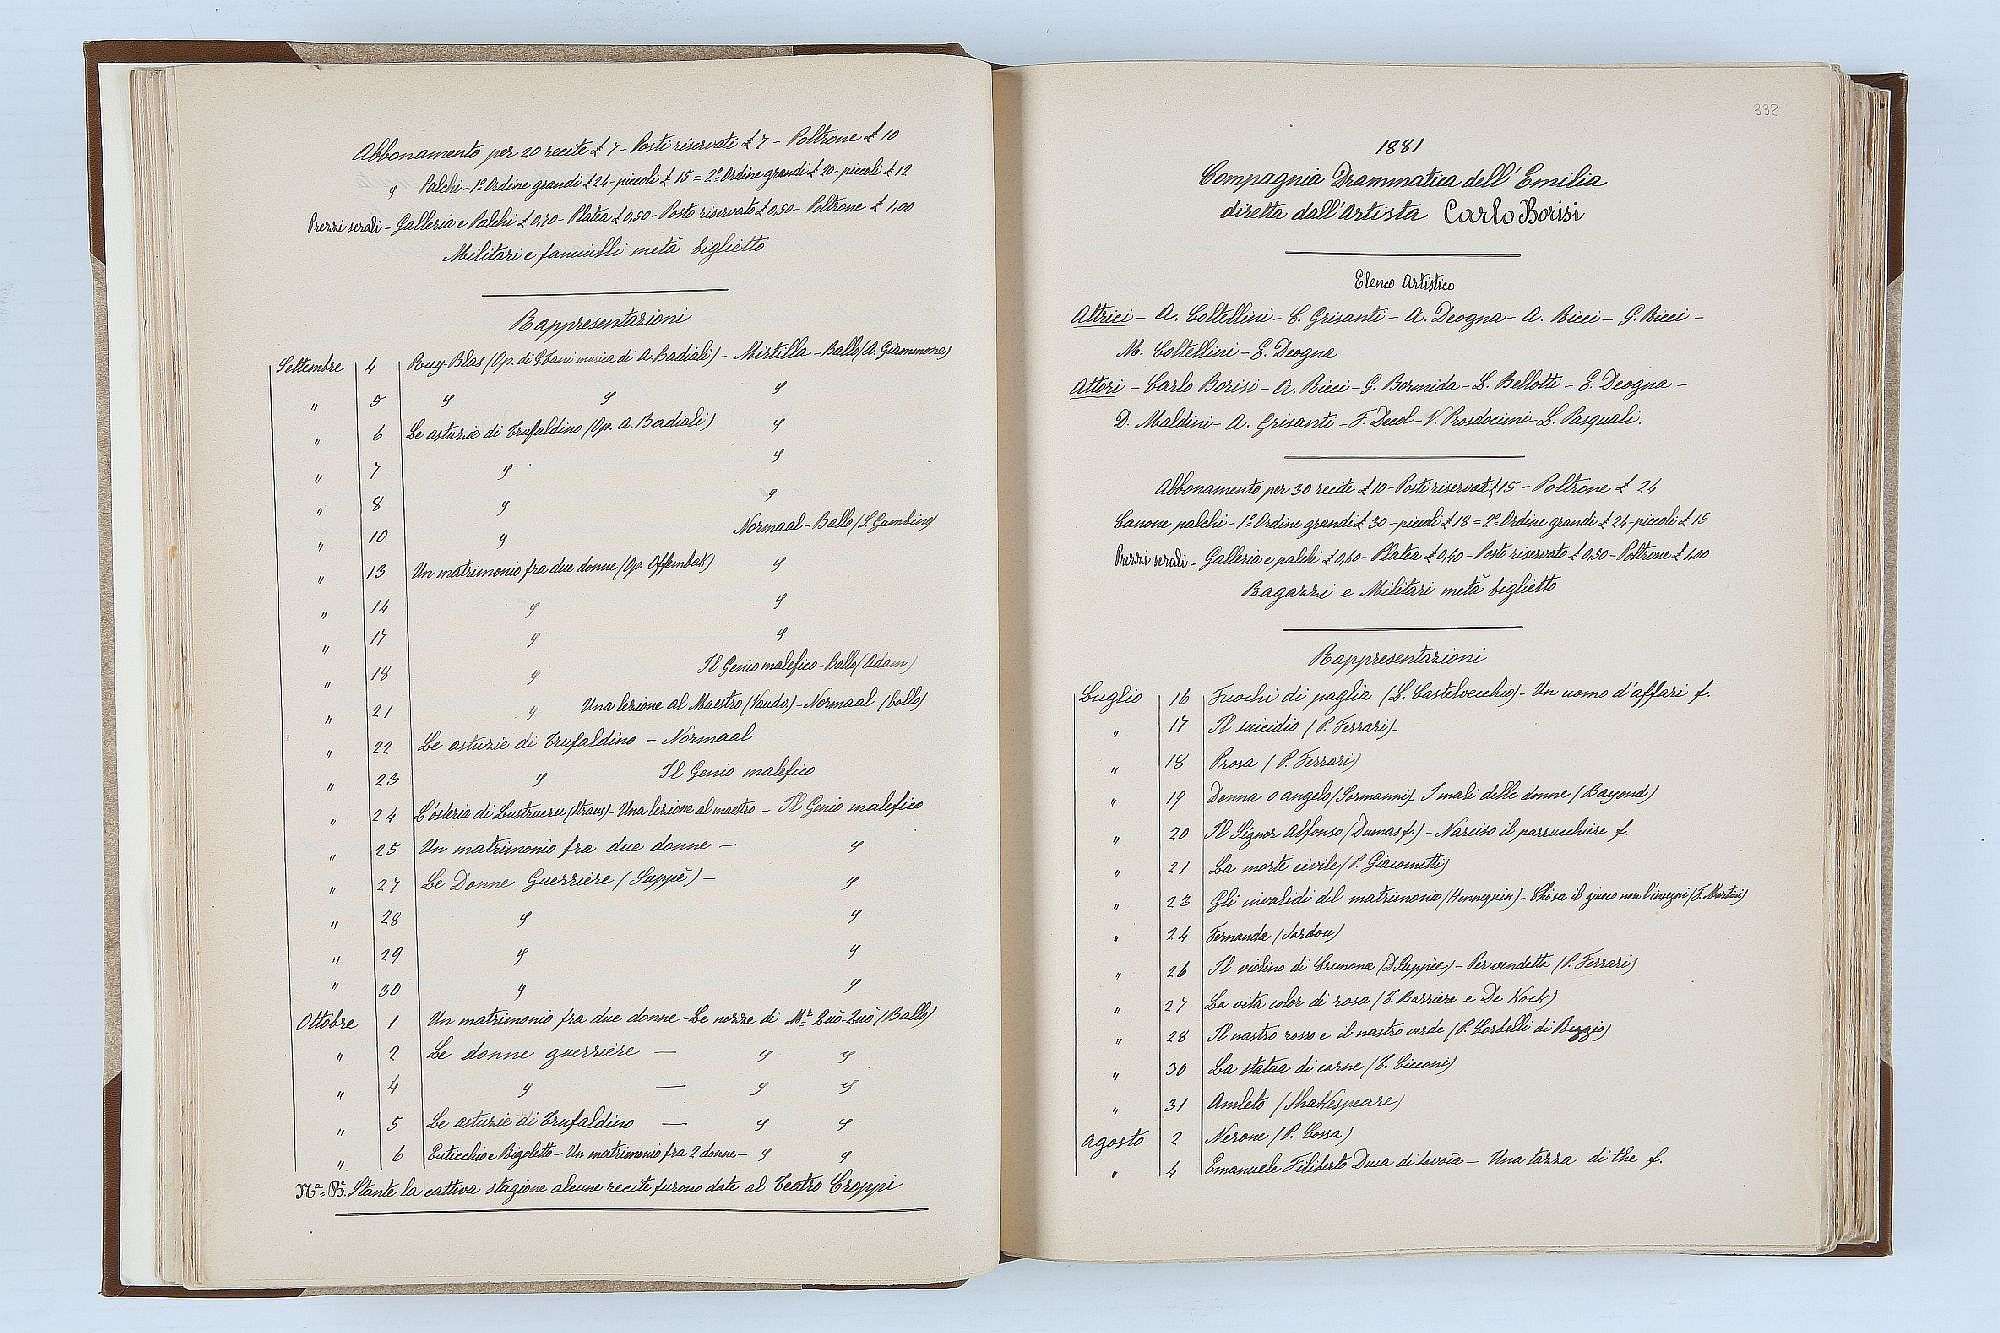 Abbonamento per 20 recite £ 7 - Posti riservati £ 7 - Poltrone £ 10
" Palchi - 1º Ordine grandi £ 24 - piccoli £ 15 = 2º Ordine grandi £ 20 - piccoli £ 12
Prezzi serali - Galleria e Palchi £ 0,40 - Platea £ 0,50 - Posto riservato £ 0,50 - Poltrone £ 1,00
Militari e fanciulli metà biglietto
Rappresentazioni
Settembre 4 Ruy-Blas (Op. di musica de A. Badiali) - Mirtilla - Ballo (A. Giammona)
" 5 " " "
" 6 Le astuzie di Trufaldino (Op. A. Badiali) "
" 7 " "
" 8 " "
" 10 " Normaal - Ballo (S. Gambini)
" 13 Un matrimonio fra due donne (Op. Offembak) "
" 14 " "
" 17 " "
" 18 " Il Genio malefico - Ballo (Adam)
" 21 " Una lezione al Maestro (Vaude.) - Normaal (Ballo)
" 22 Le astuzie di Trufaldino - Normaal
" 23 " Il Genio malefico
" 24 L'osteria di - Una lezione al maestro - Il Genio malefico
" 25 Un matrimonio fra due donne - "
" 27 Le Donne Guerriere (Suppè) - "
" 28 " "
" 29 " "
" 30 " "
Ottobre 1 Un matrimonio fra due donne - Le nozze di Mr. Quò-Quò (Ballo)
" 2 Le donne guerriere - " "
" 4 " - " "
" 5 Le astuzie di Trufaldino - " "
" 6 Euticchio e Rigoletto - Un matrimonio fra 2 donne - " "
Nª. Bª. Stante la cattiva stagione alcune recite furono date al Teatro Croppi
332
1881
Compagnia Drammatica dell'Emilia
diretta dall'Artista Carlo Borisi
Elenco Artistico
Attrici - A. Coltellini - C. Grisanti - A. Deogna - A. Ricci - G. Ricci -
M. Coltellini - E. Deogna
Attori - Carlo Borisi - A. Ricci - G. Bormida - L. Bellotti - E. Deogna -
D. Maldini - A. Grisanti - F. Decol - V. Prosdocimi - L. Pasquali.
Abbonamento per 30 recite £ 10 - Posti riservati £ 15 - Poltrone £ 24
Canone palchi - 1º Ordine grandi £ 30 - piccoli £ 18 = 2º Ordine grandi £ 24 - piccoli £ 15
Prezzi serali - Galleria e palchi £ 0,40 - Platea £ 0,40 - Posto riservato £ 0,50 - Poltrone £ 1,00
Ragazzi e Militari metà biglietto
Rappresentazioni
Luglio 16 Fuochi di paglia (L. Castelvecchio) - Un uomo d'affari f.
" 17 Il suicidio (P. Ferrari) -
" 18 Prosa (P. Ferrari)
" 19 Donna o angelo (Sormanni) - I mali delle donne (Bayond)
" 20 Il Signor Alfonso (Dumas f.) - Narciso il parrucchiere f.
" 21 La morte civile (P. Giacometti)
" 23 Gli invalidi del matrimonio (Hennequin) - Chi sa il giuoco non l'insegni (F. Martini)
" 24 Fernanda (Sardou)
" 26 Il violino di Cremona - Per vendetta (P. Ferrari)
" 27 La vita color di rosa (T. Barrière e De Kock)
" 28 Il nastro rosso e il nastro verde (P. Corbelli di Reggio)
" 30 La statua di carne (T. Cicconi)
" 31 Amleto (Shakespeare)
Agosto 2 Nerone (P. Cossa)
" 4 Emanuele Filiberto Duca di Savoia - Una tazza di the f.